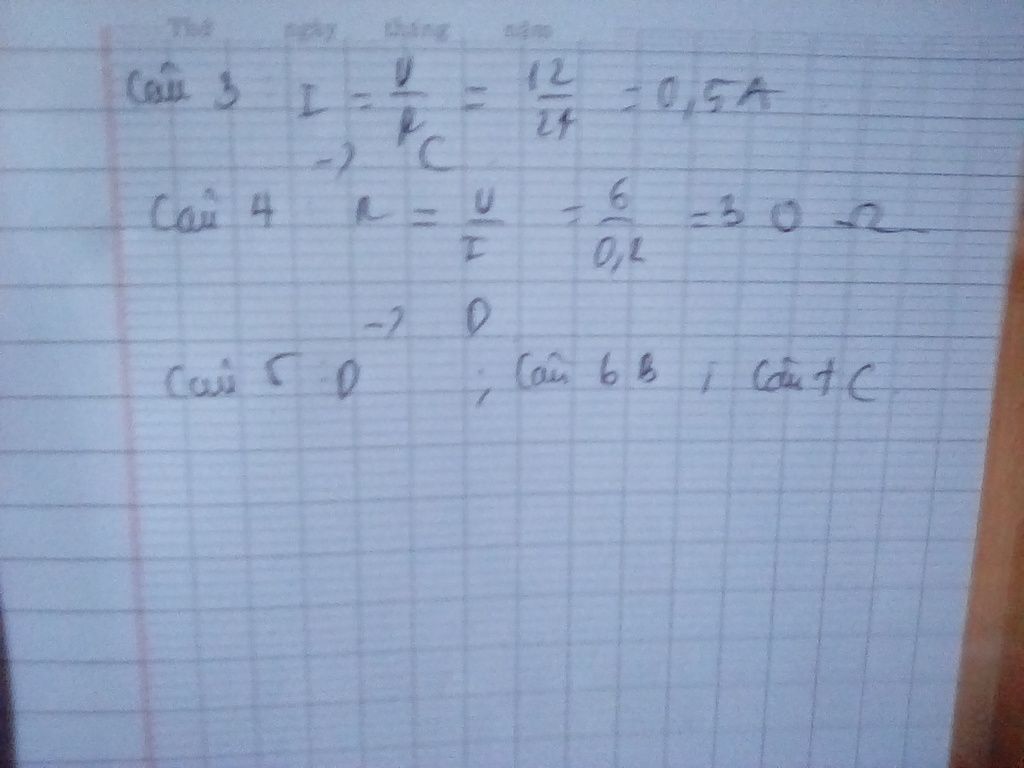 Thứ ngày tháng năm
Câu 3 I = U/R = 12/24 = 0,5A
-> C
Câu 4 R = U/I = 6/0,2 = 30 Ω
-> D
Câu 5 D ; Câu 6 B ; Câu 7 C